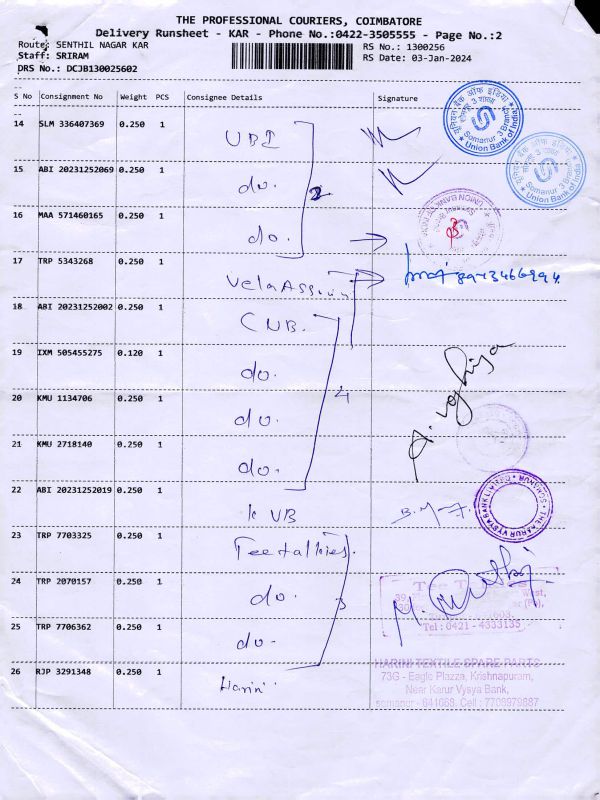 THE PROFESSIONAL COURIERS, COIMBATORE
Delivery Runsheet - KAR - Phone No.:0422-3505555 - Page No.:2
Route: SENTHIL NAGAR KAR
RS No.: 1300256
Staff: SRIRAM
RS Date: 03-Jan-2024
DRS No.: DCJB130025602
S No Consignment No Weight PCS Consignee Details Signature
14 SLM 336407369 0.250 1 UBI
15 ABI 20231252069 0.250 1 do.
16 MAA 571460165 0.250 1 do.
17 TRP 5343268 0.250 1
18 ABI 20231252002 0.250 1 CNB.
19 IXM 505455275 0.120 1 do.
20 KMU 1134706 0.250 1 do.
21 KMU 2718140 0.250 1 do.
22 ABI 20231252019 0.250 1 k VB
23 TRP 7703325 0.250 1
24 TRP 2070157 0.250 1 do.
25 TRP 7706362 0.250 1 do.
26 RJP 3291348 0.250 1 Harini
2
4
3
यूनियन बैंक ऑफ इंडिया
Somanur Branch
Union Bank of India
Somanur Branch
Union Bank of India
THE KARUR VYSYA BANK LIMITED
SOMANUR
Tel : 0421 - 4333135
HARINI TEXTILE SPARE PARTS
73G - Eagle Plazza, Krishnapuram,
Near Karur Vysya Bank,
somanur - 641668. Cell : 7706979887